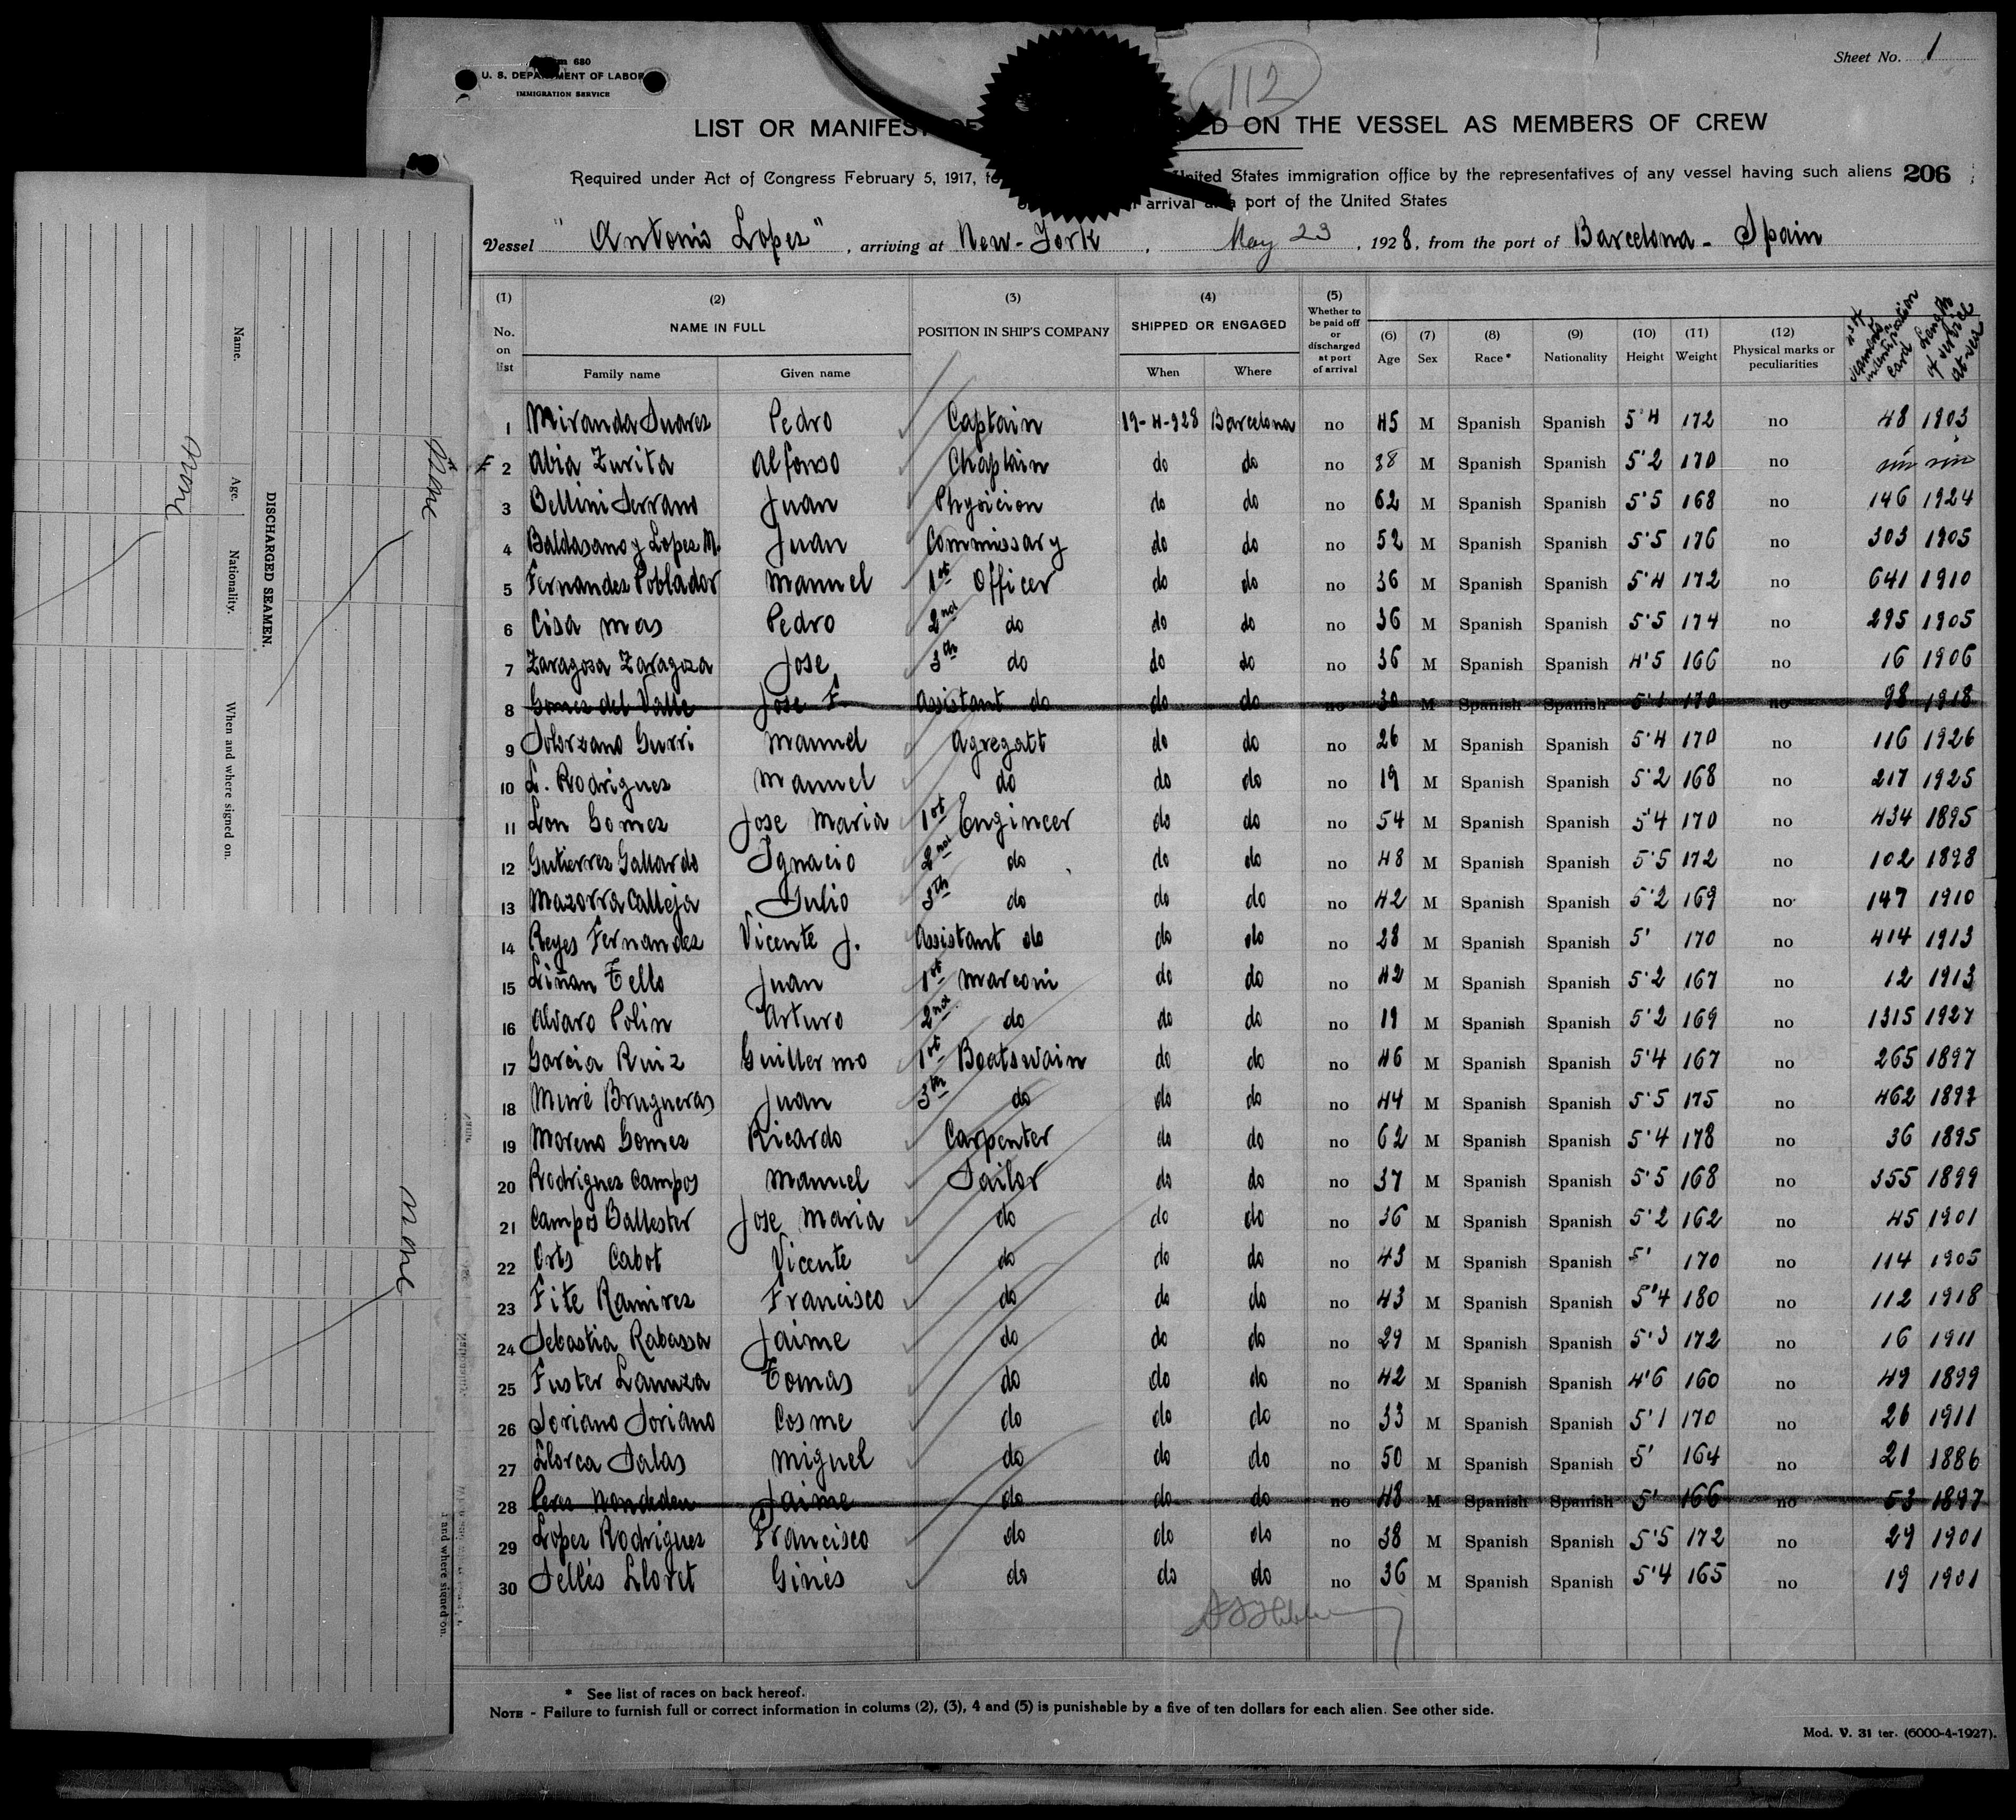 680
U. S. DEPARTMENT OF LABOR
IMMIGRATION SERVICE
112
Sheet No. 1
LIST OR MANIFEST ON THE VESSEL AS MEMBERS OF CREW
Required under Act of Congress February 5, 1917, United States immigration office by the representatives of any vessel having such aliens 206
arrival port of the United States
Vessel "Antonio Lopez", arriving at New-York, May 23, 1928, from the port of Barcelona - Spain
(1) No. on list
(2) NAME IN FULL Family name Given name
(3) POSITION IN SHIP'S COMPANY
(4) SHIPPED OR ENGAGED When Where
(5) Whether to be paid off or discharged at port of arrival
(6) Age (7) Sex (8) Race* (9) Nationality (10) Height (11) Weight (12) Physical marks or peculiarities
Nº of seamens identification card
Length of service at sea
1 Miranda Suarez Pedro Captain 19-4-928 Barcelona no 45 M Spanish Spanish 5'4 172 no 48 1903
2 Abia Zurita Alfonso Chaplain do do no 38 M Spanish Spanish 5'2 170 no sin sin
3 Bellini Serrano Juan Physicion do do no 62 M Spanish Spanish 5'5 168 no 146 1924
4 Baldasano y Lopez M. Juan Commissary do do no 52 M Spanish Spanish 5'5 176 no 303 1905
5 Fernandez Poblador Manuel 1st Officer do do no 36 M Spanish Spanish 5'4 172 no 641 1910
6 Cisa Mas Pedro 2nd do do do no 36 M Spanish Spanish 5'5 174 no 295 1905
7 Zaragoza Zaragoza Jose 3th do do do no 36 M Spanish Spanish 4'5 166 no 16 1906
8 Gomez del Valle Jose F. Assistant do do do no 30 M Spanish Spanish 5'1 170 no 98 1918
9 Solorzano Gurri Manuel Agregatt do do no 26 M Spanish Spanish 5'4 170 no 116 1926
10 L. Rodriguez Manuel do do do no 19 M Spanish Spanish 5'2 168 no 217 1925
11 Lon Gomez Jose Maria 1st Engineer do do no 54 M Spanish Spanish 5'4 170 no 434 1895
12 Gutierrez Gallardo Ignacio 2nd do do do no 48 M Spanish Spanish 5'5 172 no 102 1898
13 Mazorra Calleja Julio 3th do do do no 42 M Spanish Spanish 5'2 169 no 147 1910
14 Reyes Fernandez Vicente J. Assistant do do do no 28 M Spanish Spanish 5' 170 no 414 1913
15 Liñan Tello Juan 1st Marconi do do no 42 M Spanish Spanish 5'2 167 no 12 1913
16 Alvaro Polin Arturo 2nd do do do no 19 M Spanish Spanish 5'2 169 no 1315 1927
17 Garcia Ruiz Guillermo 1st Boatswain do do no 46 M Spanish Spanish 5'4 167 no 265 1897
18 Muré Brugueras Juan 3th do do do no 44 M Spanish Spanish 5'5 175 no 462 1897
19 Moreno Gomez Ricardo Carpenter do do no 62 M Spanish Spanish 5'4 178 no 36 1895
20 Rodriguez Campos Manuel Sailor do do no 37 M Spanish Spanish 5'5 168 no 355 1899
21 Campos Ballester Jose Maria do do do no 36 M Spanish Spanish 5'2 162 no 45 1901
22 Orts Cabot Vicente do do do no 43 M Spanish Spanish 5' 170 no 114 1905
23 Fite Ramirez Francisco do do do no 43 M Spanish Spanish 5'4 180 no 112 1918
24 Sebastia Rabassa Jaime do do do no 29 M Spanish Spanish 5'3 172 no 16 1911
25 Fuster Lanuza Tomas do do do no 42 M Spanish Spanish 4'6 160 no 49 1899
26 Soriano Soriano Cosme do do do no 33 M Spanish Spanish 5'1 170 no 26 1911
27 Llorca Salas Miguel do do do no 50 M Spanish Spanish 5' 164 no 21 1886
28 Perez Jaime do do do no 48 M Spanish Spanish 5' 166 no 53 1897
29 Lopez Rodriguez Francisco do do do no 38 M Spanish Spanish 5'5 172 no 29 1901
30 Sellés Lloret Ginés do do do no 36 M Spanish Spanish 5'4 165 no 19 1901
* See list of races on back hereof.
NOTE - Failure to furnish full or correct information in colums (2), (3), 4 and (5) is punishable by a five of ten dollars for each alien. See other side.
Mod. V. 31 ter. (6000-4-1927).
DISCHARGED SEAMEN.
Name. Age. Nationality. When and where signed on.
None
None
None
and where signed on.